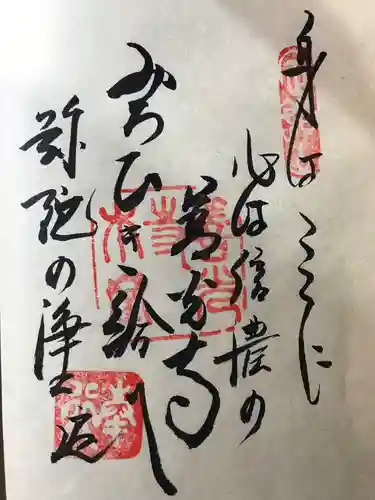 身はここに
心は信濃の
善光寺
みちびき給へ
弥陀の浄土へ